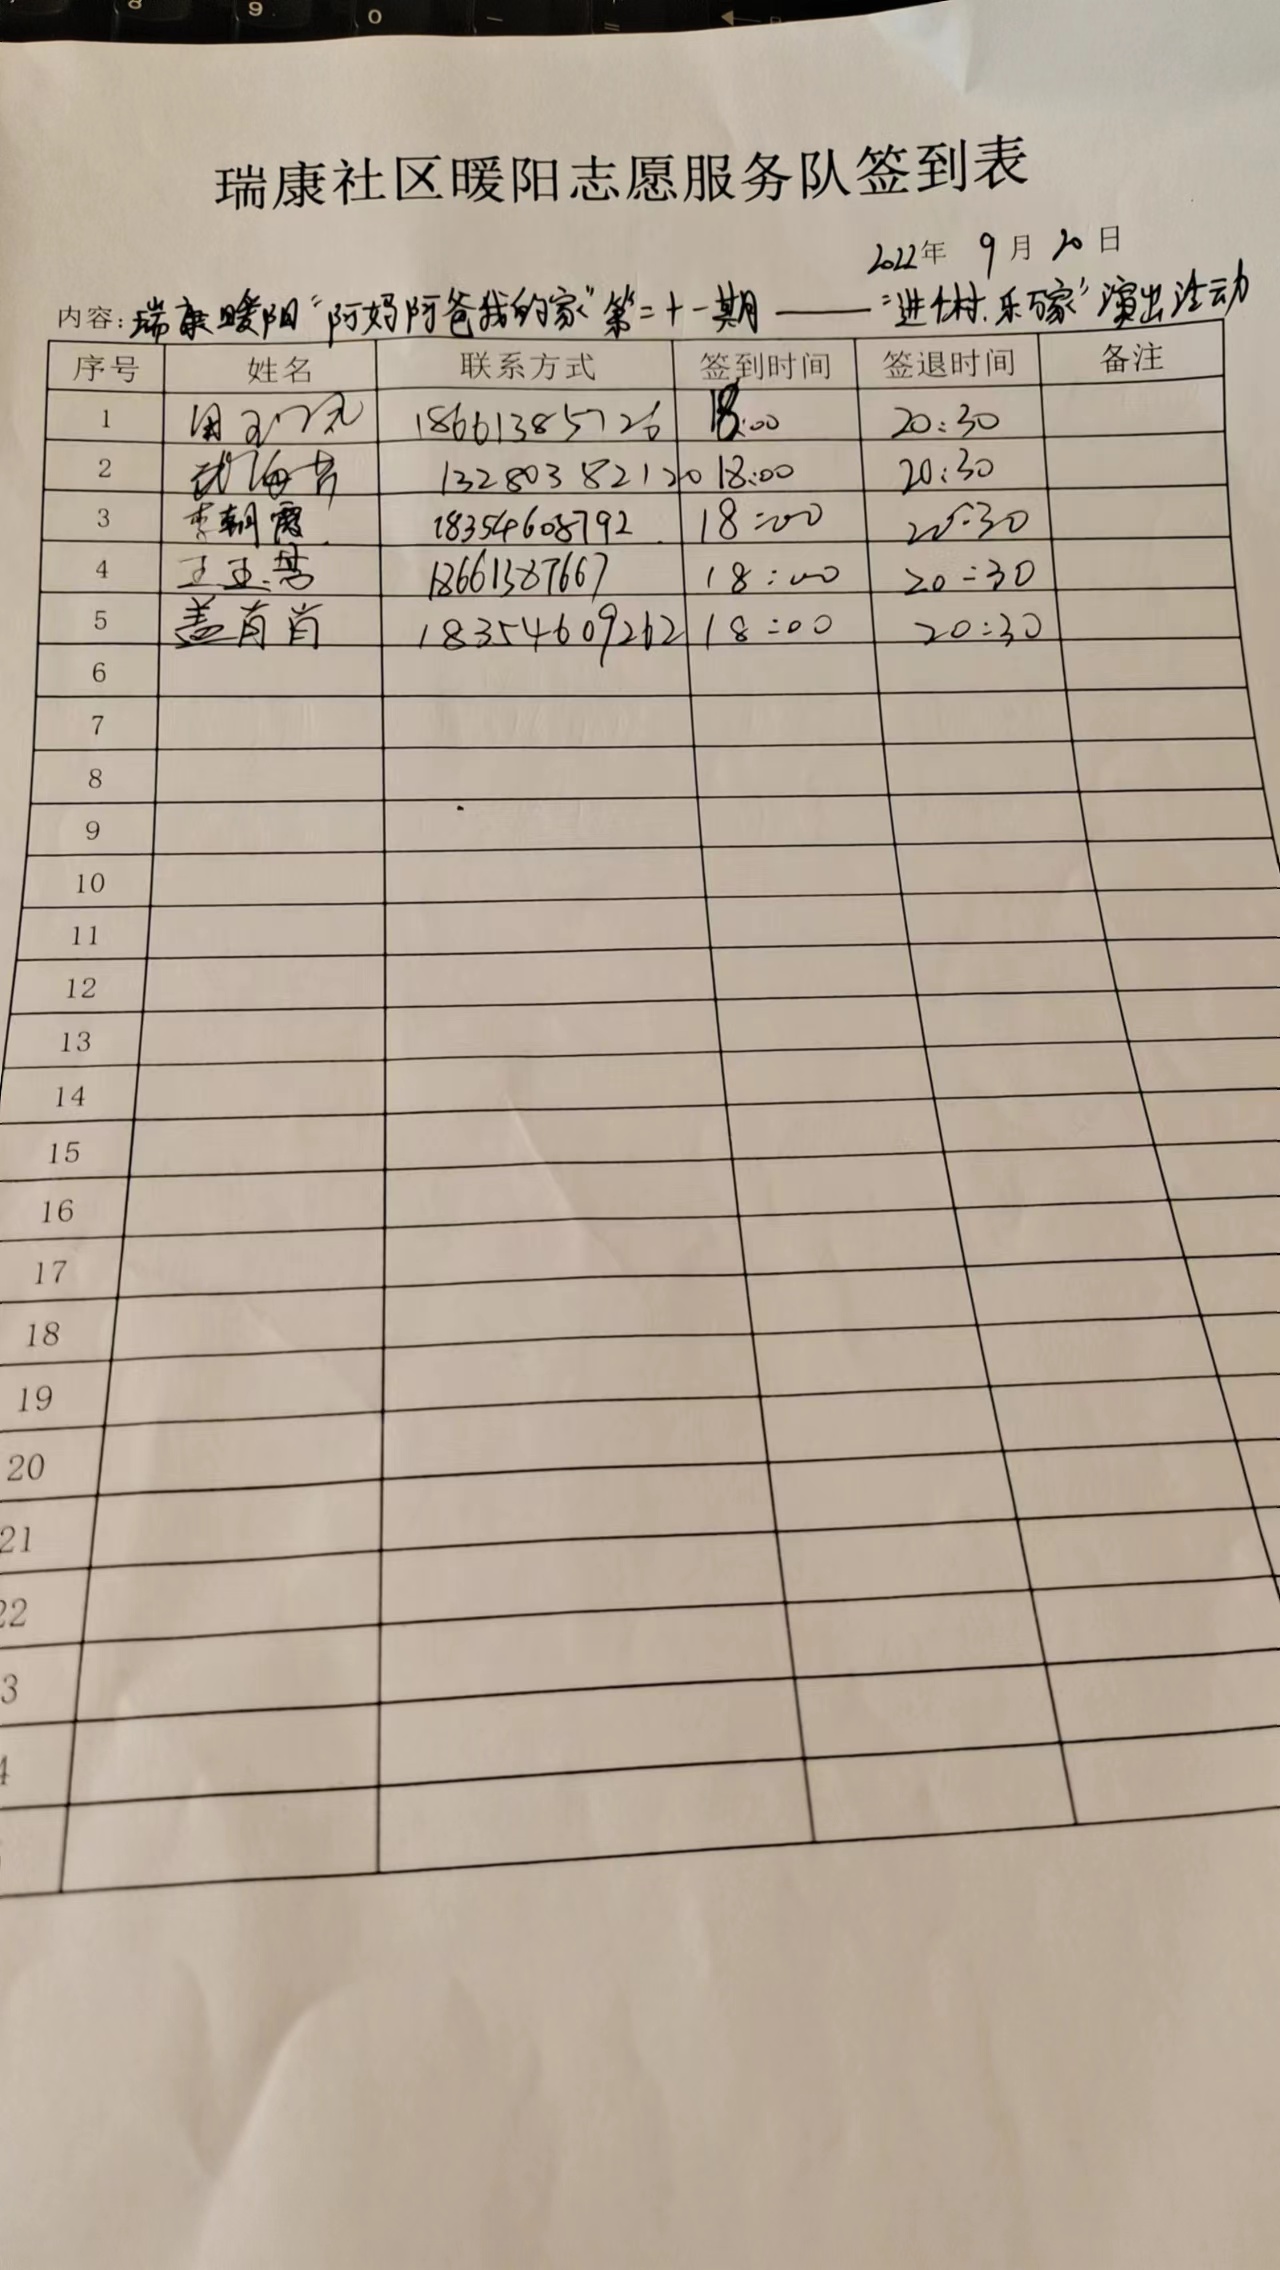 9
0
瑞康社区暖阳志愿服务队签到表
2022年 9月 20日
内容: 瑞康暖阳"阿妈阿爸我的家"第二十一期——"进村.乐万家"演出活动
序号 姓名 联系方式 签到时间 签退时间 备注
1 18661385726 18:00 20:30
2 13280382120 18:00 20:30
3 李朝霞 18354608792 18:00 20:30
4 王玉 18661387667 18:00 20:30
5 盖肖肖 18354609262 18:00 20:30
6
7
8
9
10
11
12
13
14
15
16
17
18
19
20
21
22
3
4